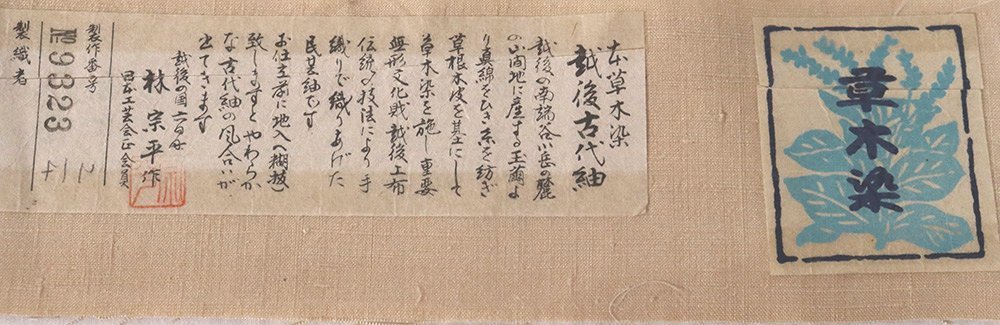 草木染
本草木染
越後古代紬
越後の南端谷川岳の麓
の山間地に産する玉繭よ
り真綿をひき糸を紡ぎ
草根木皮を基にして
草木染を施し重要
無形文化財越後上布
伝統の技法により手
織りで織りあげた
民芸紬です
お仕立前に地入(糊抜)
致しますとやわらか
な古代紬の風合いが
出てきます
越後の国六日町
林宗平作
日本工芸会正会員
製作番号
№9323
製織者